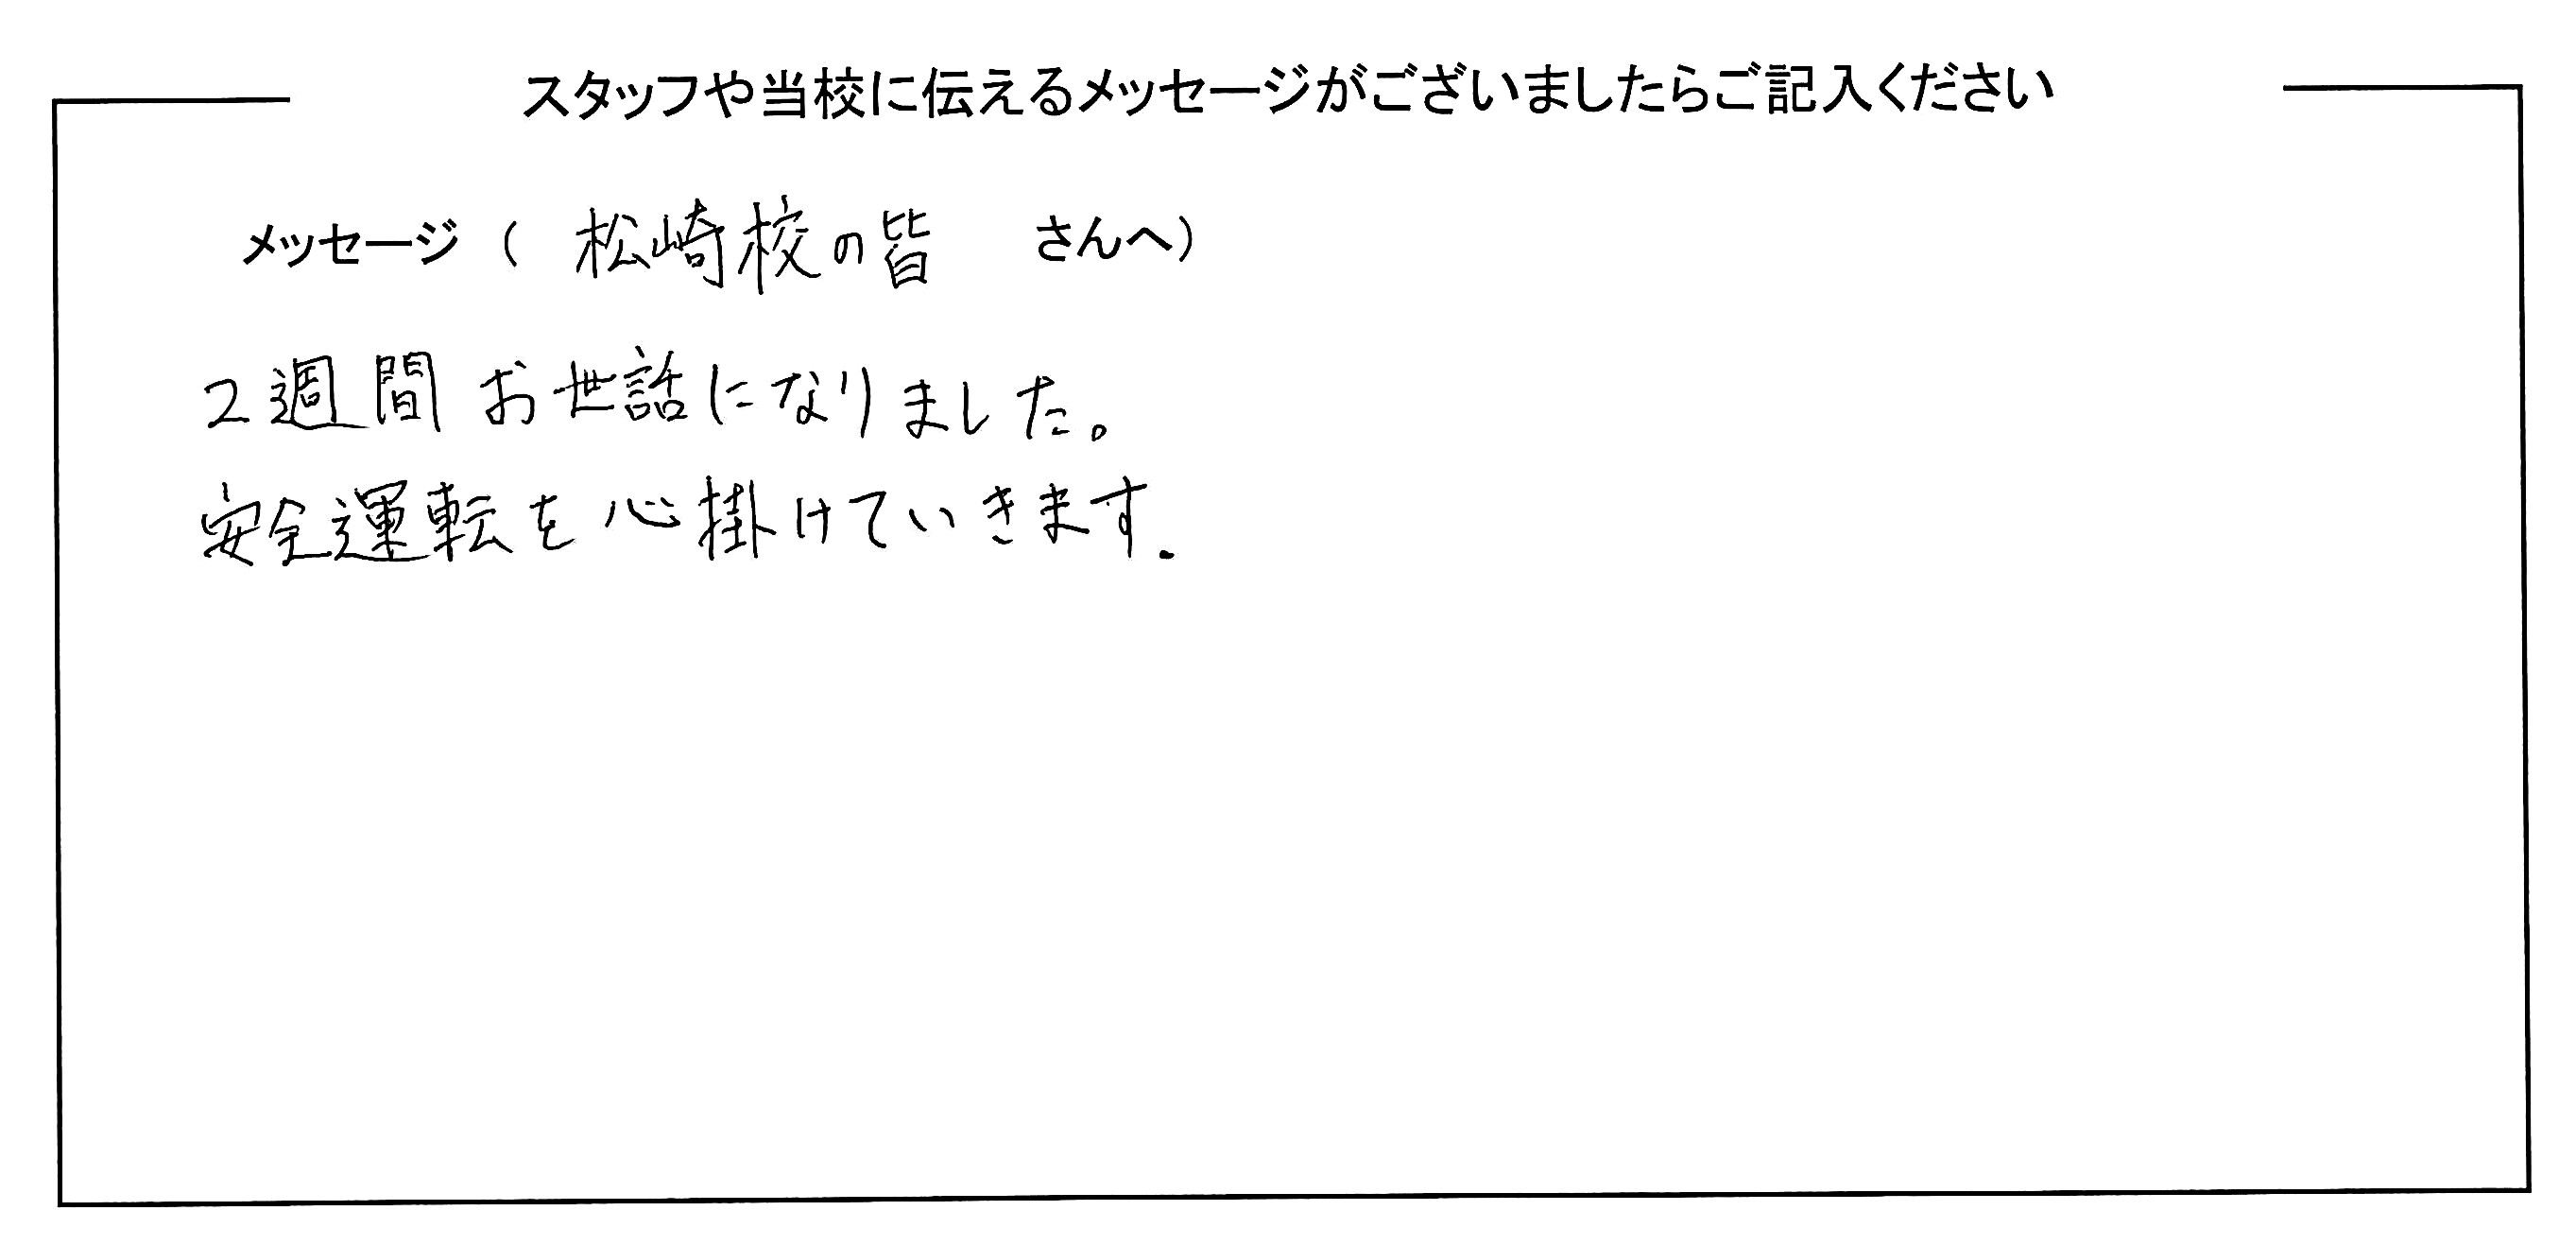 スタッフや当校に伝えるメッセージがございましたらご記入ください
メッセージ（ 松崎校の皆 さんへ）
2週間お世話になりました。
安全運転を心掛けていきます.